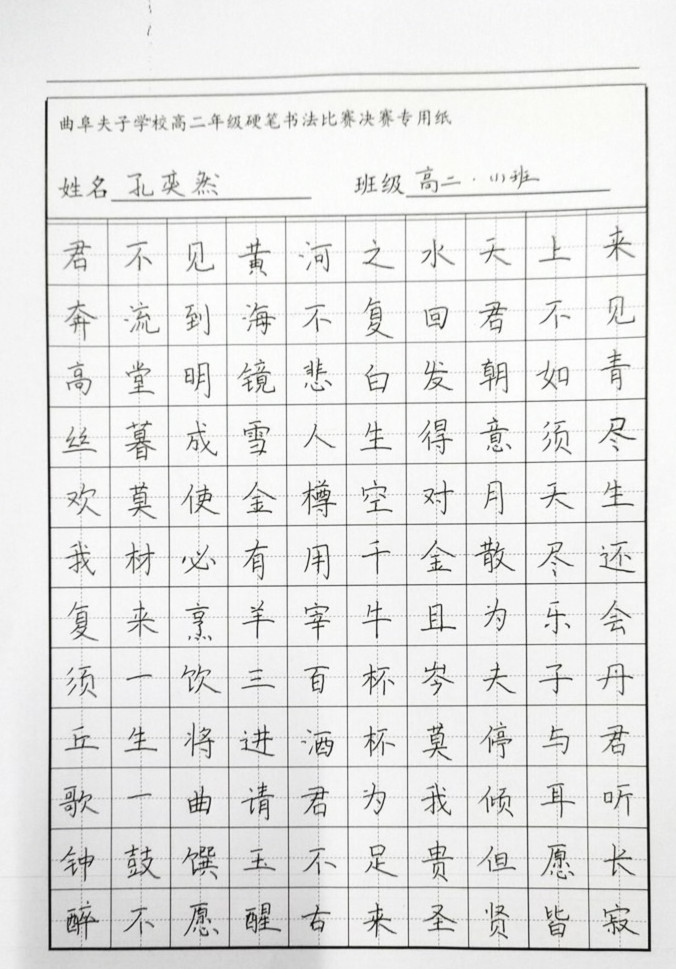 曲阜夫子学校高二年级硬笔书法比赛决赛专用纸
姓名 孔英然 班级 高二·(1)班
君不见黄河之水天上来
奔流到海不复回君不见
高堂明镜悲白发朝如青
丝暮成雪人生得意须尽
欢莫使金樽空对月天生
我材必有用千金散尽还
复来烹羊宰牛且为乐会
须一饮三百杯岑夫子丹
丘生将进酒杯莫停与君
歌一曲请君为我倾耳听
钟鼓馔玉不足贵但愿长
醉不愿醒古来圣贤皆寂